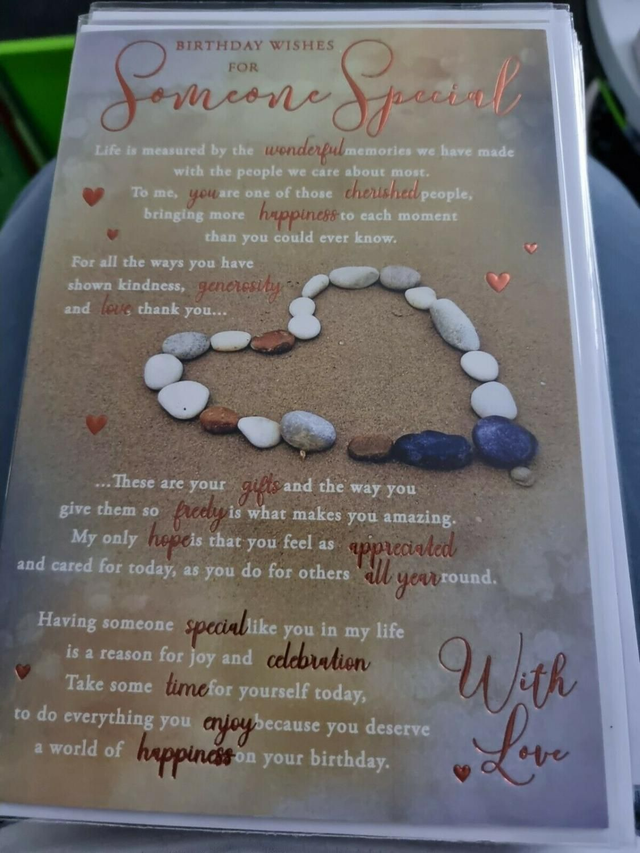 BIRTHDAY WISHES
FOR
Someone Special
Life is measured by the wonderful memories we have made
with the people we care about most.
To me, you are one of those cherished people,
bringing more happiness to each moment
than you could ever know.
For all the ways you have
shown kindness, generosity
and love, thank you...
...These are your gifts and the way you
give them so freely is what makes you amazing.
My only hope is that you feel as appreciated
and cared for today, as you do for others all year round.
Having someone special like you in my life
is a reason for joy and celebration
Take some time for yourself today,
to do everything you enjoy because you deserve
a world of happiness on your birthday.
With
Love